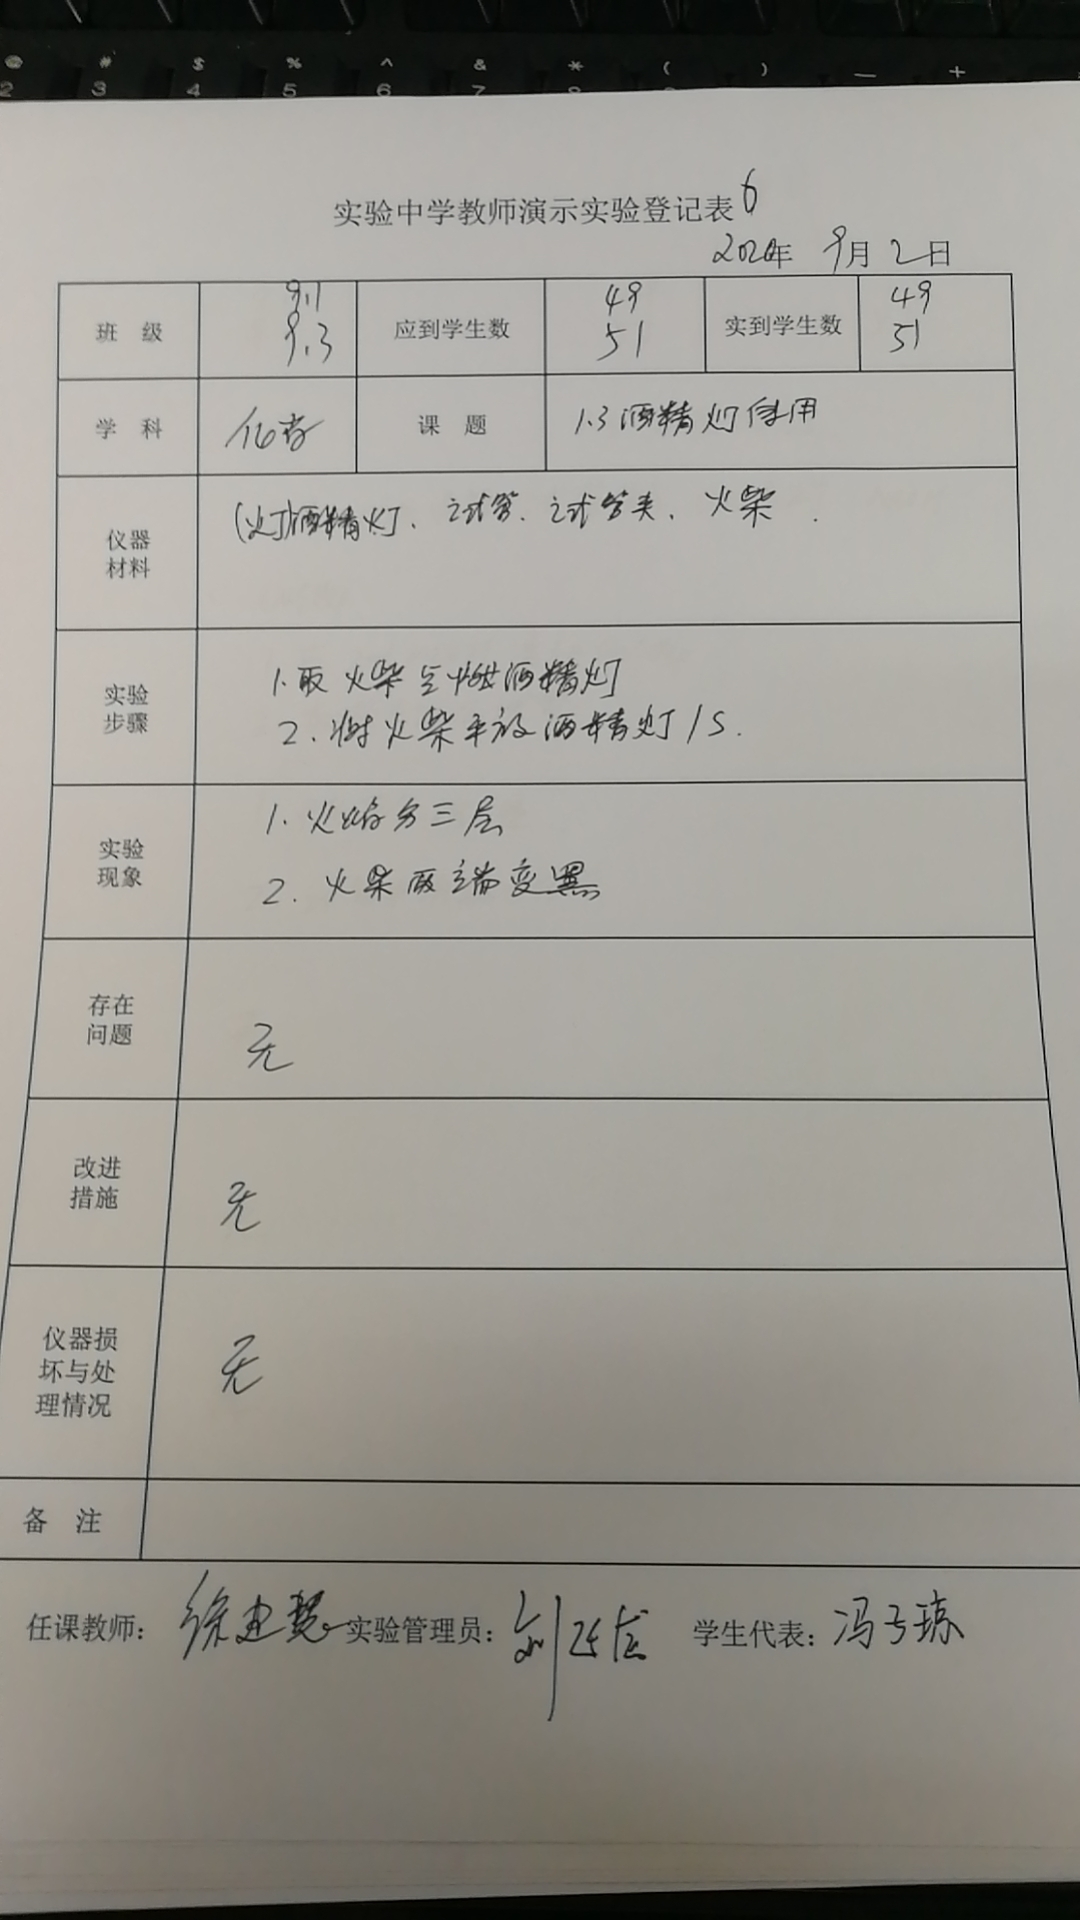 @ # $ % ^ & * ( ) — +
2 3 4 5 6 7
实验中学教师演示实验登记表 6
2020年 9月2日
班 级 9.1 9.3 应到学生数 49 51 实到学生数 49 51
学 科 化学 课 题 1.3 酒精灯使用
仪器材料 (灯)酒精灯、试管、试管夹、火柴.
实验步骤 1.取火柴点燃酒精灯
2.将火柴平放酒精灯1S.
实验现象 1.火焰分三层
2.火柴两端变黑
存在问题 无
改进措施 无
仪器损坏与处理情况 无
备 注
任课教师: 徐建慧 实验管理员: 刘 学生代表: 冯子琼